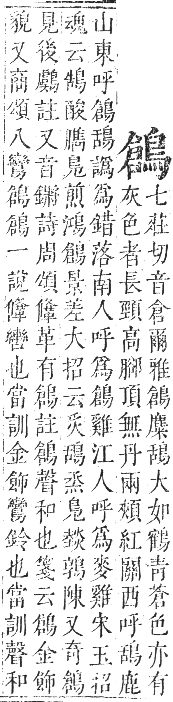 鶬
七莊切音倉爾雅鶬麋鴰大如鶴青蒼色亦有
灰色者長頸高腳頂無丹兩頰紅關西呼鴰鹿
山東呼鶬鴰譌爲錯落南人呼爲鶬雞江人呼爲麥雞宋玉招
魂云鵠酸臇鳧煎鴻鶬景差大招云炙鴰烝鳧煔鶉陳又奇鶬
見後鸕註又音鏘詩周頌鞗革有鶬註鶬聲和也箋云鶬金飾
貌又商頌八鸞鶬鶬一說鞗轡也當訓金飾鸞鈴也當訓聲和